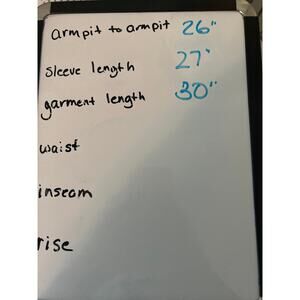 armpit to armpit 26"
sleeve length 27"
garment length 30"
waist
inseam
rise